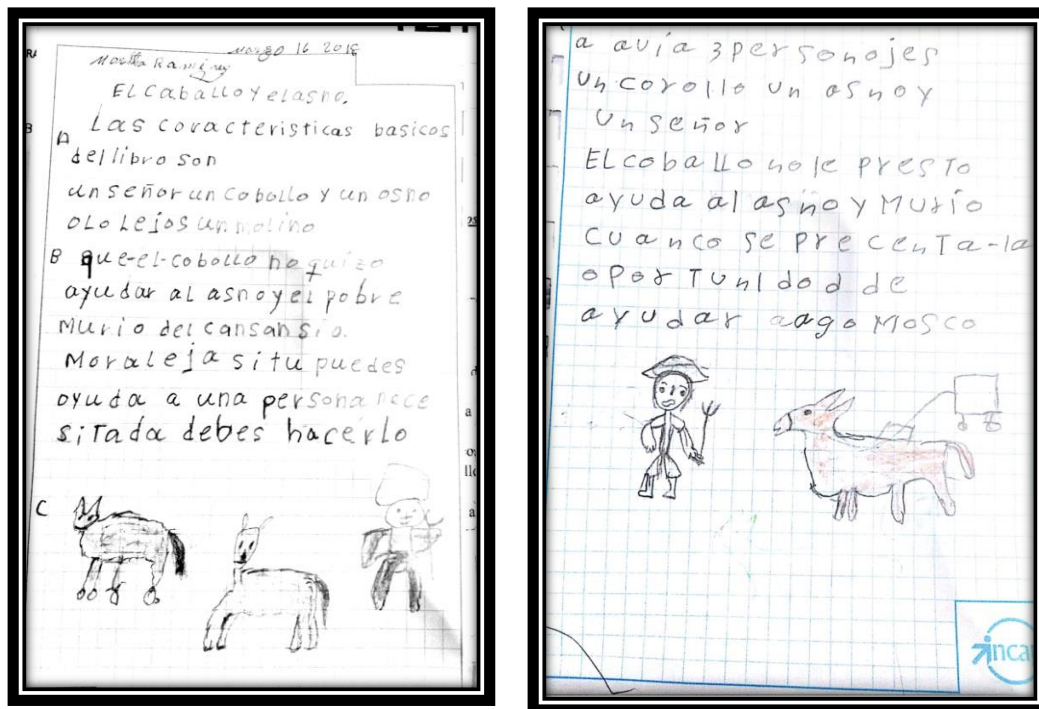 Marzo 16 2018
Martha Ramirez
EL Caballo y el asno.
A Las coracteristicas basicos
del libro son
un señor un cobollo y un osno
o Lo Lejos un molino
B que-el-cobollo no quizo
ayudar al asno y el pobre
Murio del cansansio.
Moraleja si tu puedes
oyuda a una persona nece
sitada debes hacerlo
C
a avia 3 personojes
Un corollo un osno y
Un señor
EL coballo no le Presto
ayuda al asño y Murio
cuanco se Precenta-la
oportunidod de
ayudar
inca